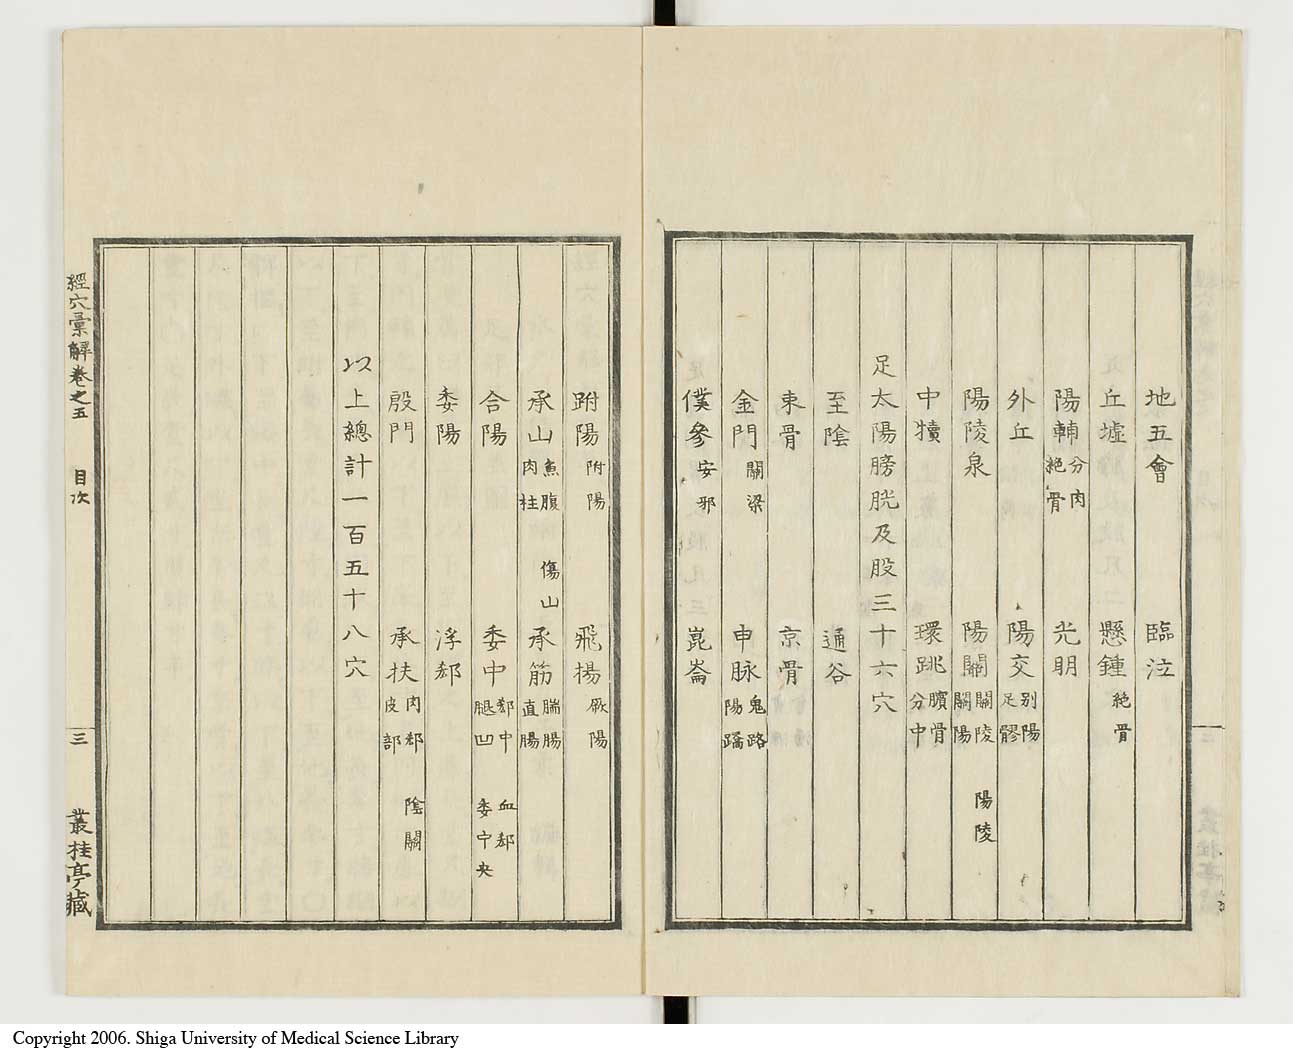 地五會 臨泣
丘墟 懸鍾 絶骨
陽輔 分肉 絶骨 光明
外丘 陽交 别陽 足髎
陽陵泉 陽關 關陵 關陽 陽陵
中犢 環跳 髕骨 分中
足太陽膀胱及股三十六穴
至陰 通谷
束骨 京骨
金門 關梁 申脉 鬼路 陽蹻
僕參 安邪 崑崙
跗陽 附陽 飛揚 厥陽
承山 魚腹 肉柱 傷山 承筋 腨腸 直腸
合陽 委中 郄中 腿凹 血郄 委中央
委陽 浮郄
殷門 承扶 肉郄 皮部 陰關
以上總計一百五十八穴
經穴彙解卷之五 目次 三 叢桂亭藏
Copyright 2006. Shiga University of Medical Science Library